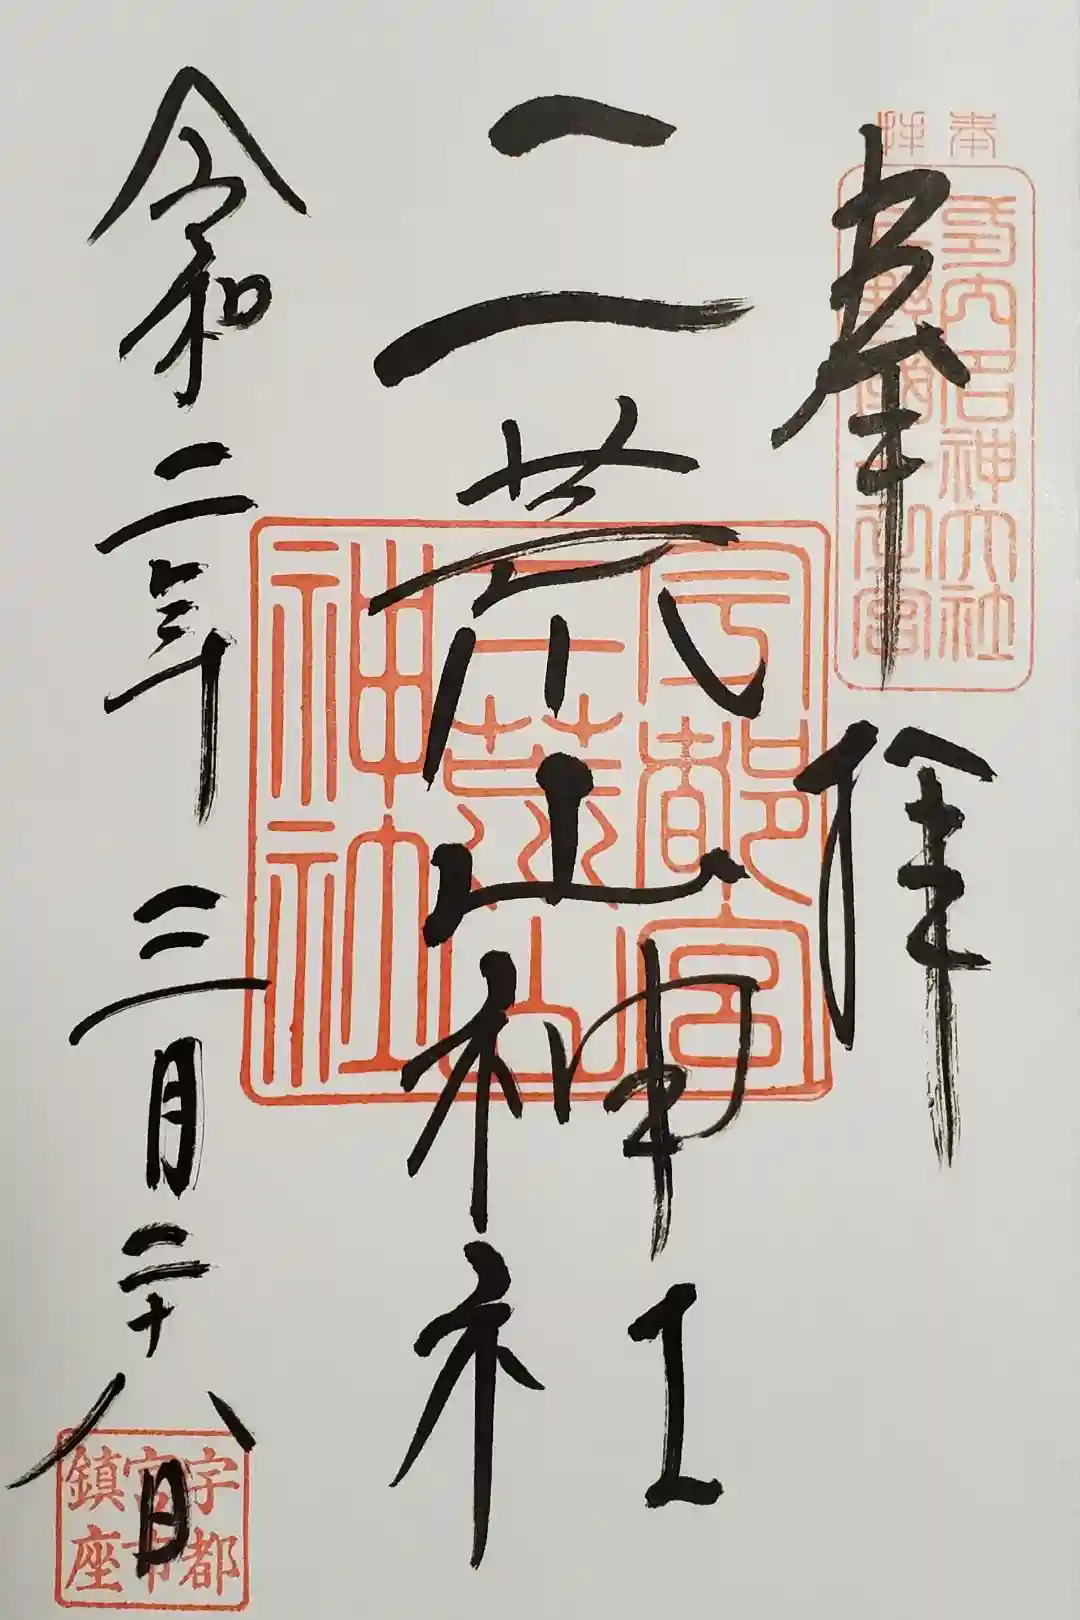 奉拝
延喜式内名神大社
下野國一之宮
奉拝
二荒山神社
宇都宮
二荒山
神社
令和二年三月二十八日
宇都
宮市
鎮座